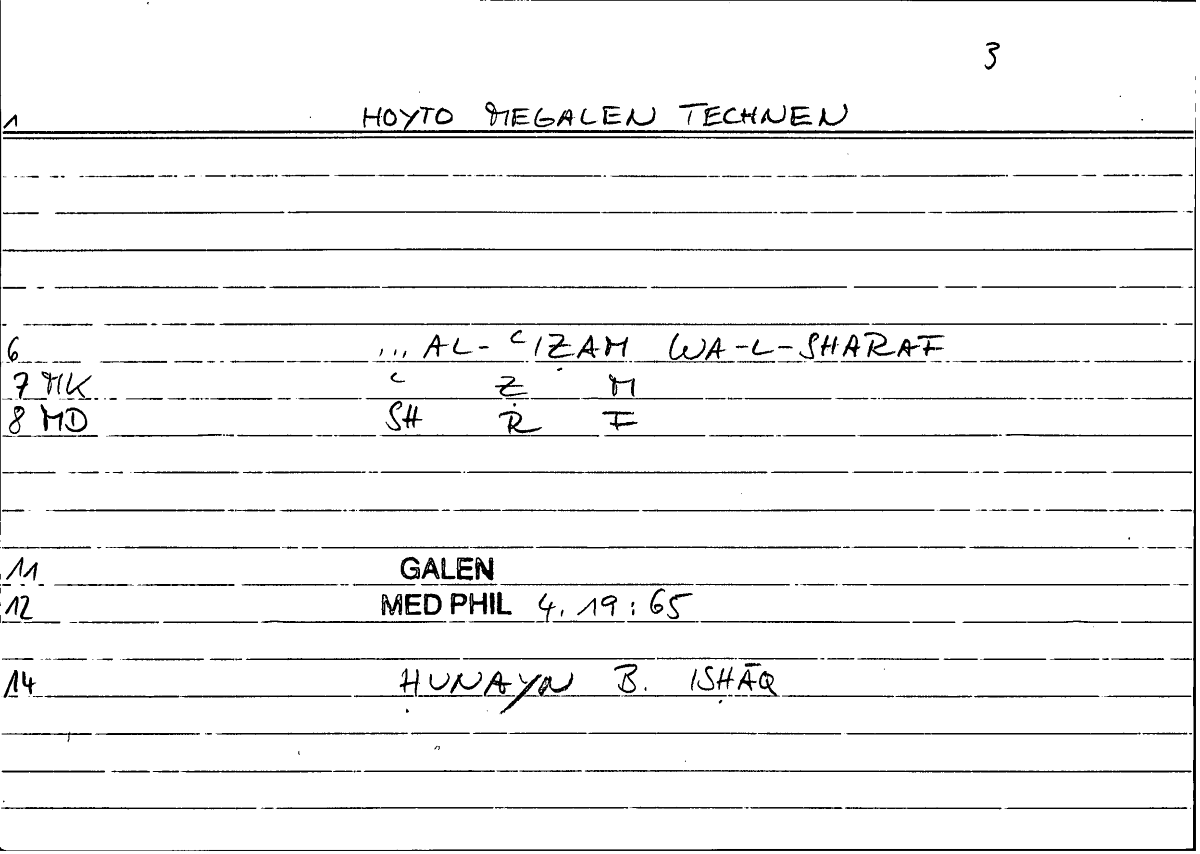 3
1 HOYTO MEGALEN TECHNEN
6 ... AL- ʿIẒAM WA-L-SHARAF
7 MK ʿ Ẓ M
8 MD SH R F
11 GALEN
12 MED PHIL 4. 19 : 65
14 ḤUNAYN B. ISḤĀQ